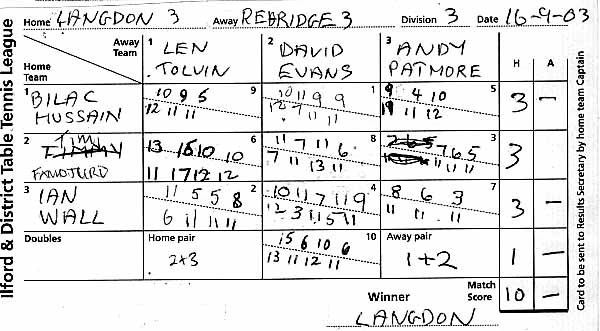 Ilford & District Table Tennis League
Home LANGDON 3 Away REBRIDGE 3 Division 3 Date 16-9-03
Away Team 1 LEN TOLVIN 2 DAVID EVANS 3 ANDY PATMORE H A
Home Team
1 BILAC HUSSAIN 10 9 5 9 10 11 9 9 1 9 4 10 5 3 -
12 11 11 12 7 11 11 11 11 12
2 Timi 13 15 10 10 6 11 7 11 6 8 7 6 5 3 3
FAMOTURD 11 17 12 12 7 11 13 11 11 11 11
3 IAN WALL 11 5 5 8 2 10 11 7 11 9 4 8 6 3 7 3 -
6 11 11 11 12 3 11 15 11 11 11 11
Doubles Home pair 15 6 10 6 10 Away pair 1 -
2+3 13 11 12 11 1+2
Winner Match Score 10 -
LANGDON
Card to be sent to Results Secretary by home team Captain